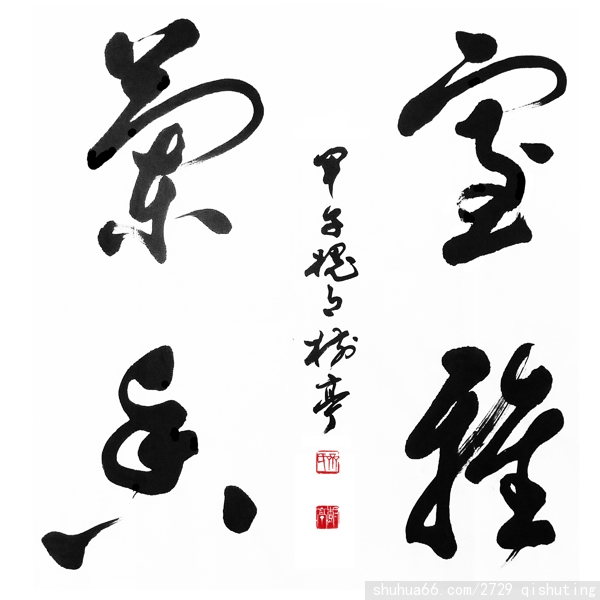 室雅
蘭香
甲午槐月樹亭
shuhua66.com/2729 qishuting